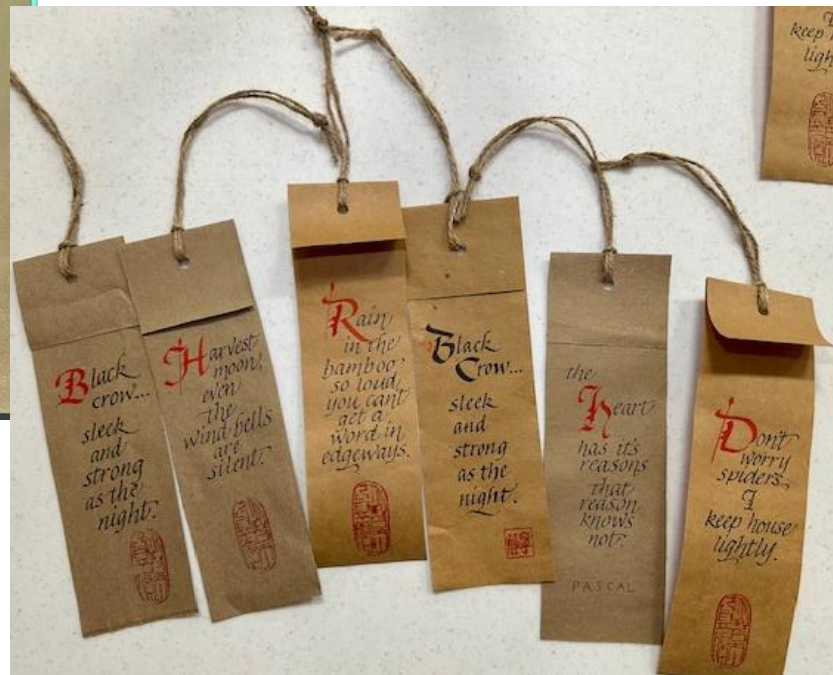 Black
crow...
sleek
and
strong
as the
night.
Harvest
moon,
even
the
wind-bells
are
silent.
Rain
in the
bamboo
so loud
you can't
get a
word in
edgeways.
Black
Crow...
sleek
and
strong
as the
night.
the
heart
has it's
reasons
that
reason
knows
not.
PASCAL
Don't
worry
spiders
I
keep house
lightly.
I
keep